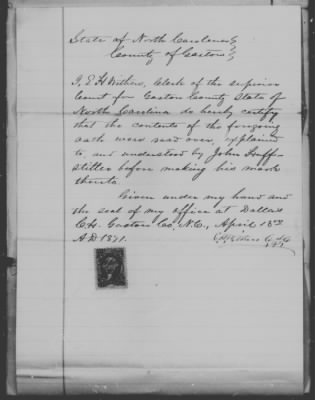 State of North Carolina
County of Gaston
I, E H Withers, Clerk of the superior
Court for Gaston County State of
North Carolina do hereby certify
that the contents of the foregoing
oath were read over, explained
to, and understood by John Huff-
stetler before making his mark
thereto.
Given under my hand and
the seal of my office at Dallas
C.H. Gaston Co. N.C., April 13th
A.D 1871.
E H Withers